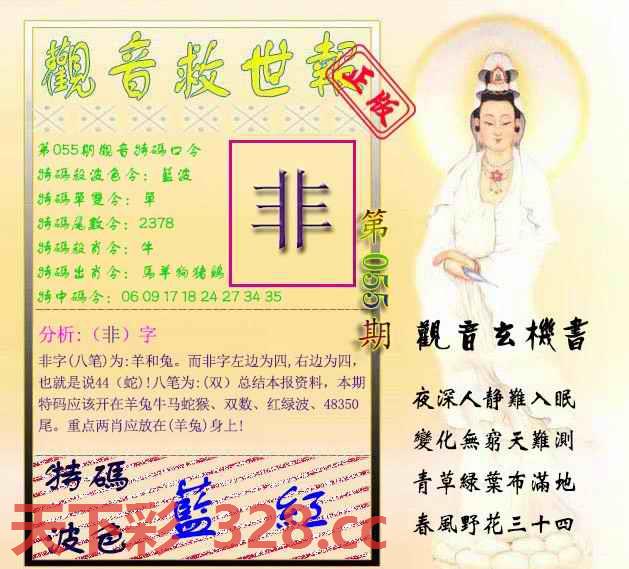 觀音救世報
正版
第055期觀音特碼口令
特碼殺波色令：藍波
特碼單雙令：單
特碼尾數令：2378
特碼殺肖令：牛
特碼出肖令：馬羊狗猪鷄
特中碼令：06 09 17 18 24 27 34 35
非
第055期
分析:（非）字
非字(八笔)为:羊和兔。而非字左边为四,右边为四，
也就是说44（蛇)!八笔为:(双）总结本报资料，本期
特码应该开在羊兔牛马蛇猴、双数、红绿波、48350
尾。重点两肖应放在(羊兔)身上!
特碼
波色
藍 紅
天下彩 328.cc
觀音玄機書
夜深人静難入眠
變化無窮天難測
青草緑葉布滿地
春風野花三十四